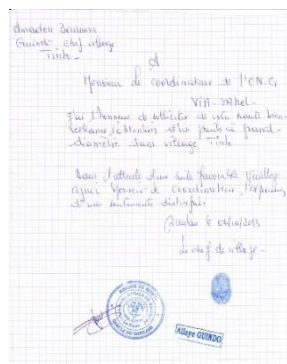 Amadou Bourema
Guindo chef village
Tinto -
A
Monsieur le coordinateur de l'O.N.G
VIA-SAHEL -
J'ai l'honneur de solliciter de votre haute bien-
veillance l'obtention d'un puits à grand-
diamètre dans village Tinto.
Dans l'attente d'une suite favorable veuillez
agréer Monsieur le Coordinateur, l'expression
de mes sentiments distingués
le 04/10/2013
Le chef de village -
Allaye GUINDO